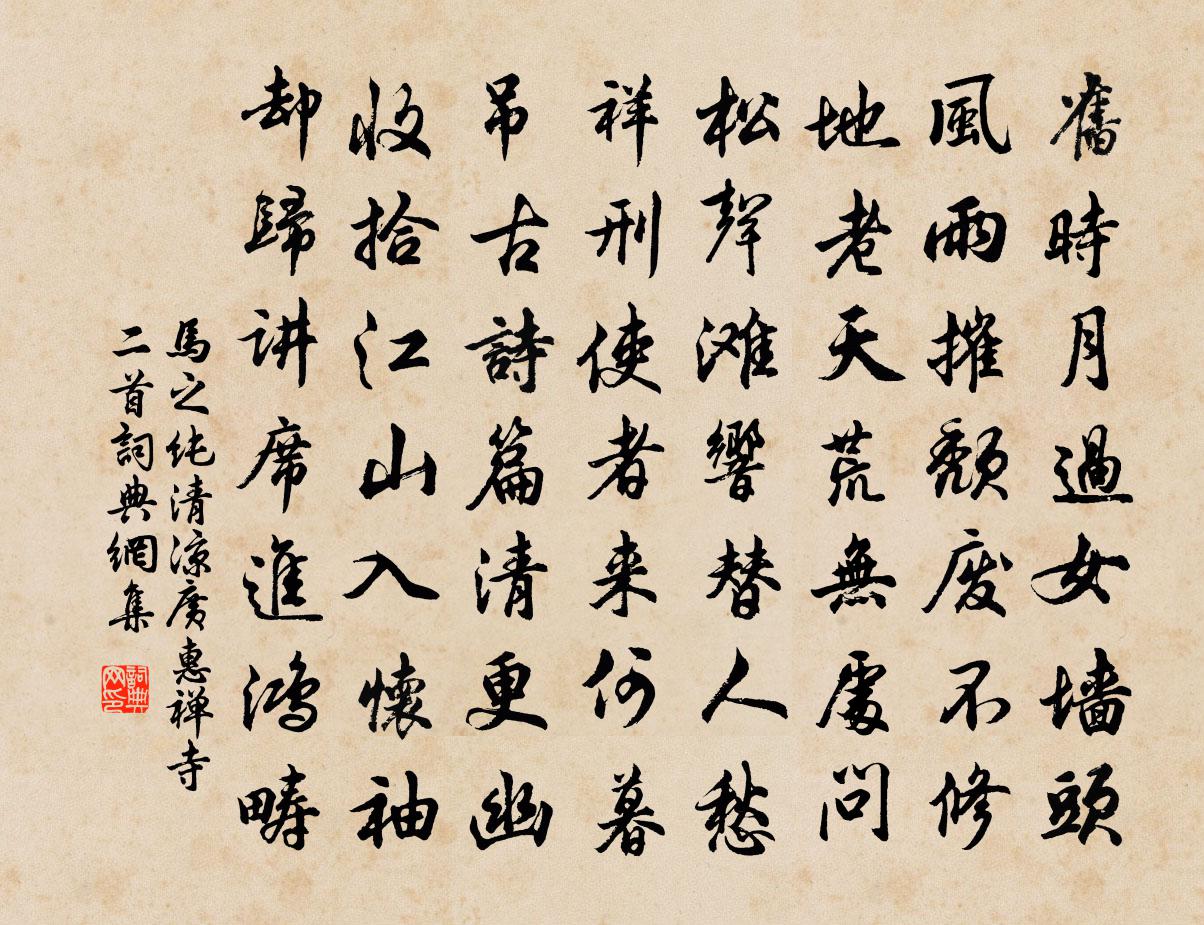 舊時月過女墻頭
風雨摧頹廢不修
地老天荒無處問
松聲灘響替人愁
祥刑使者来何暮
吊古詩篇清更幽
收拾江山入懷袖
却歸讲席進鴻疇
馬之纯清凉廣惠禅寺
二首詞典網集
詞典网印